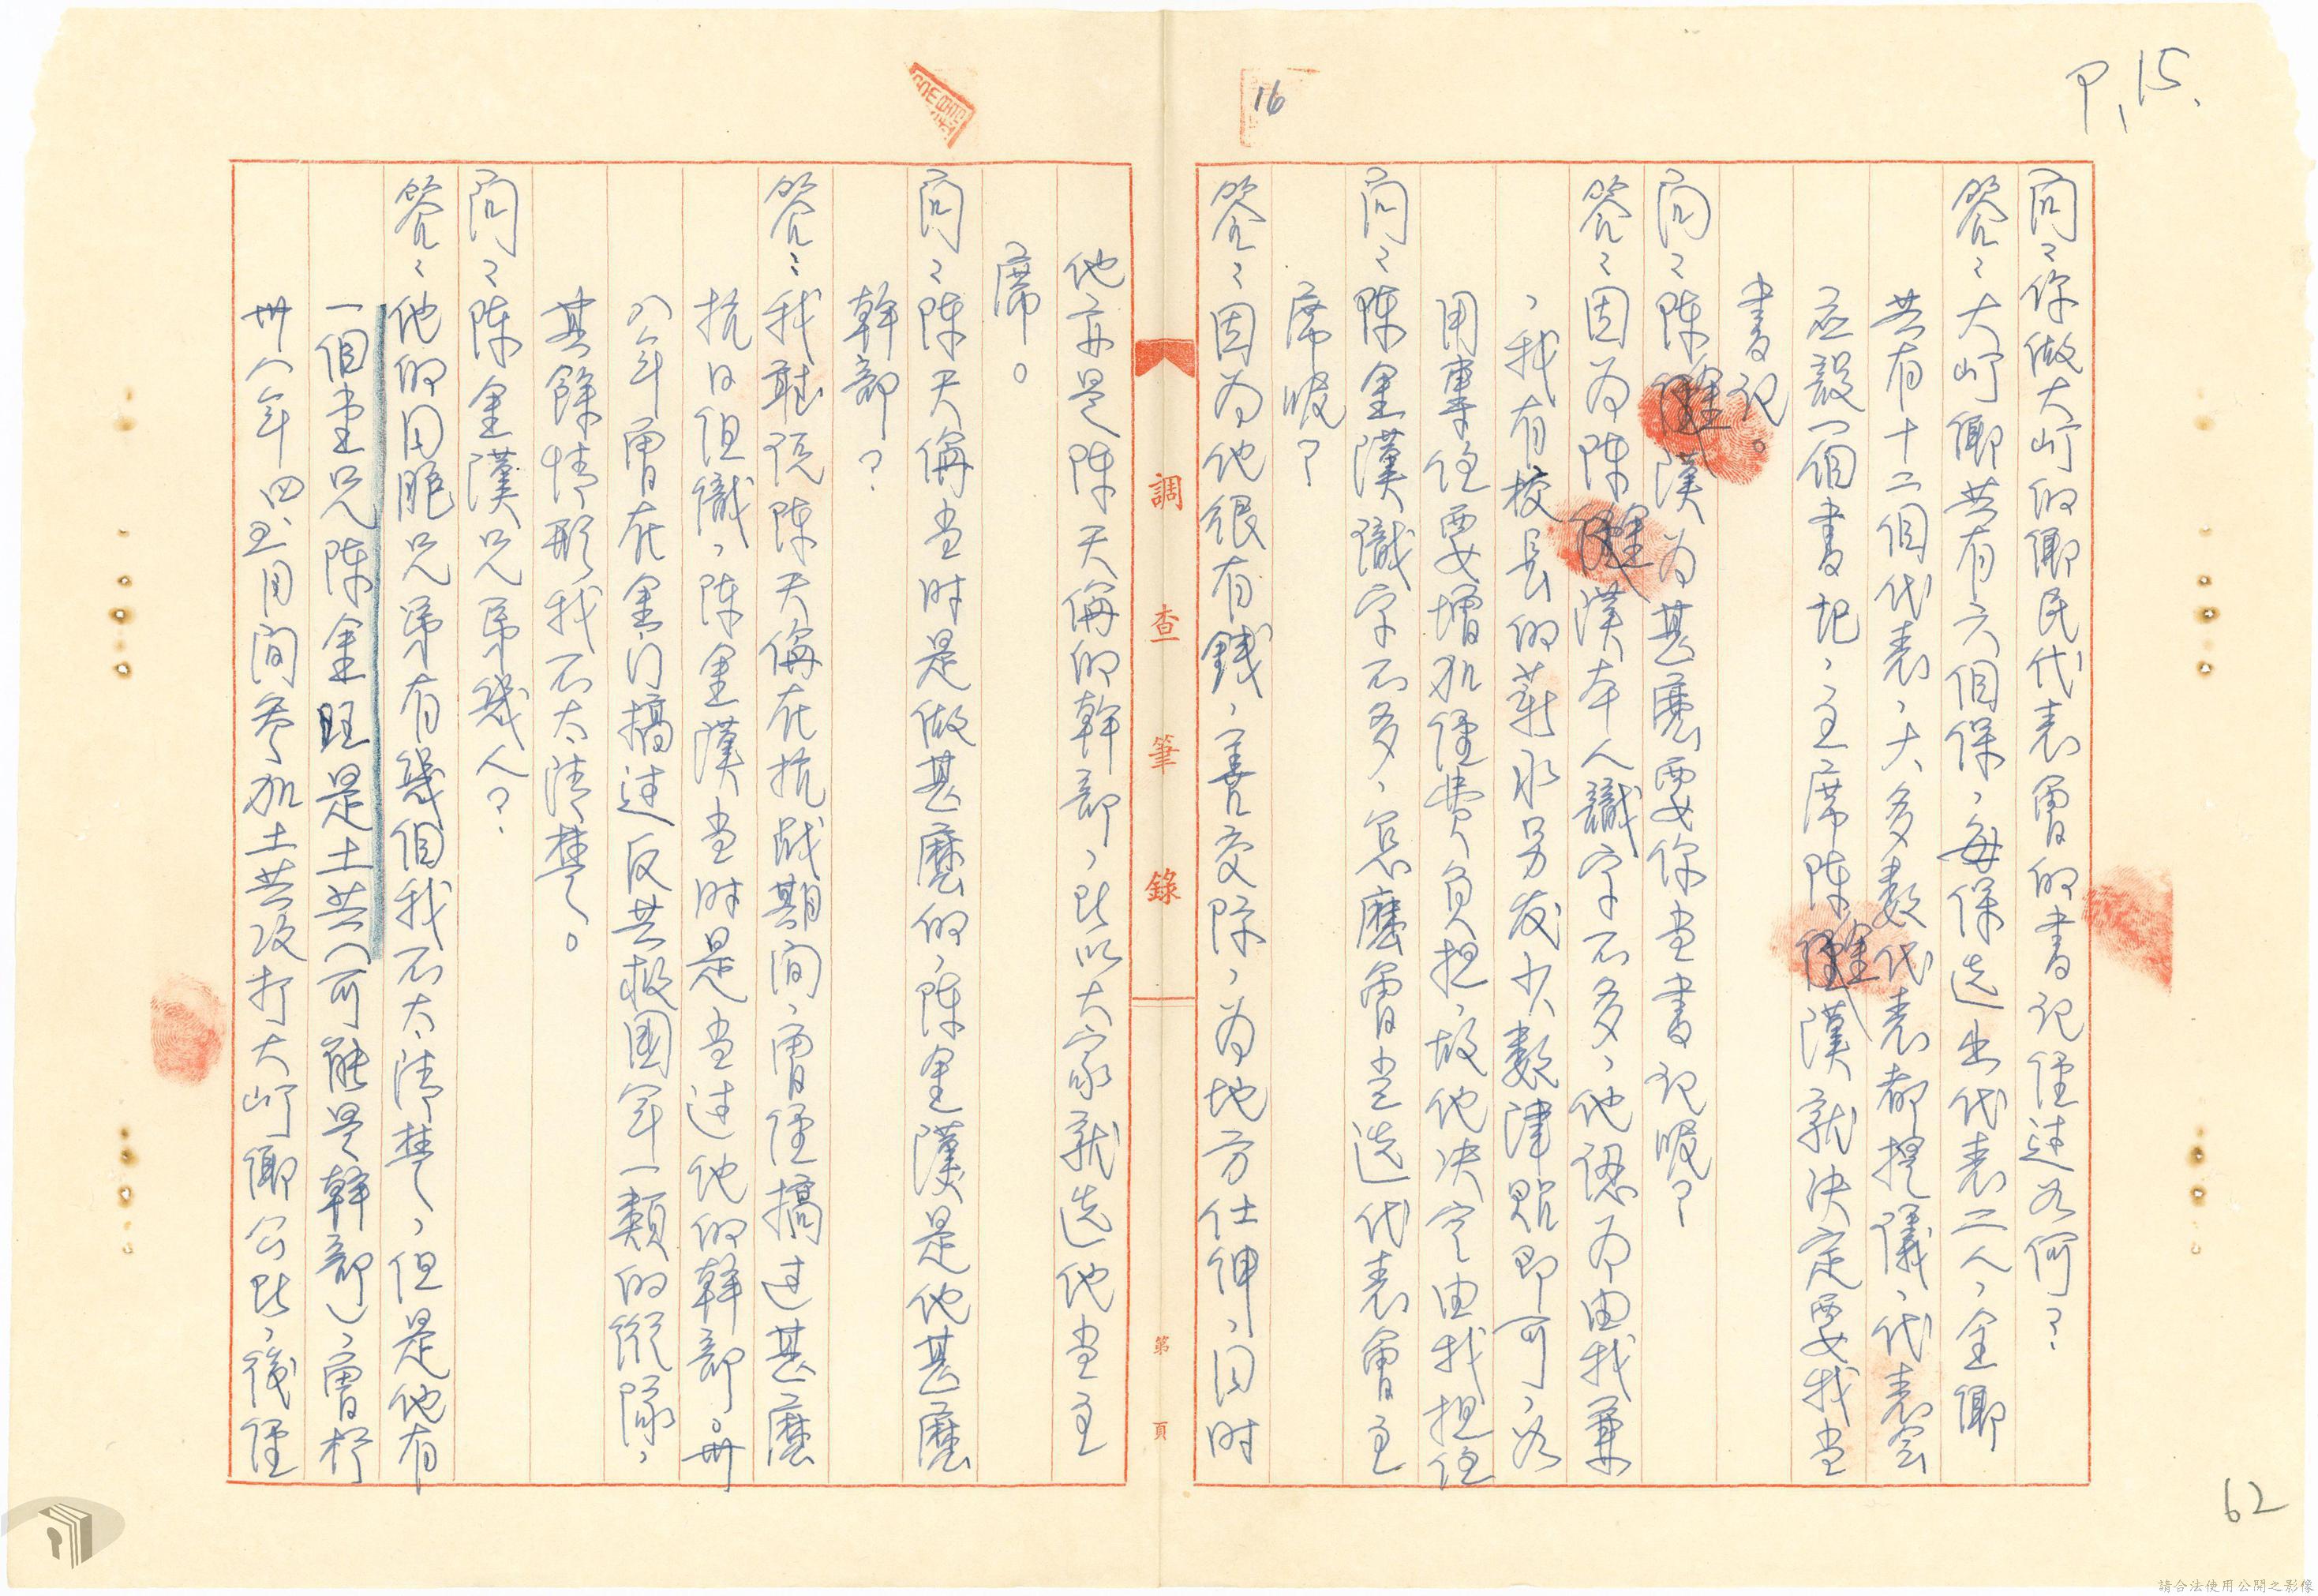 P.15.
16
問:你做大嶝的鄉民代表會的書記經过为何?
答:大嶝鄉共有六個保,每保选出代表二人,全鄉
共有十二個代表,大多数代表都提議,代表会
应設一個書記,主席陈金漢就決定要我当
書記。
問:陈金漢为甚麼要你当書記呢?
答:因为陈金漢本人識字不多,他認为由我兼
,我有校長的薪水另发少数津貼即可,为
用專任要增加經費負担,故他决定由我担任
問:陈金漢識字不多,怎麼會当选代表會主
席呢?
答:因为他很有錢,善交際,为地方仕紳,同时
調查筆錄
第 頁
他亦是陈天侮的幹部,所以大家就选他当主
席。
問:陈天侮当时是做甚麼的,陈金漢是他甚麼
幹部?
答:我聽說陈天侮在抗战期间,曾經搞过甚麼
抗日组織,陈金漢当时是当过他的幹部。卅
八年曾在金门搞过反共救國军一類的縱隊,
其餘情形我不太清楚。
問:陈金漢兄弟幾人?
答:他的同胞兄弟有幾個我不太清楚,但是他有
一個堂兄陈金旺是土共(可能是幹部),曾於
卅八年四、五月间参加土共攻打大嶝鄉公所,後經
62
請合法使用公開之影像